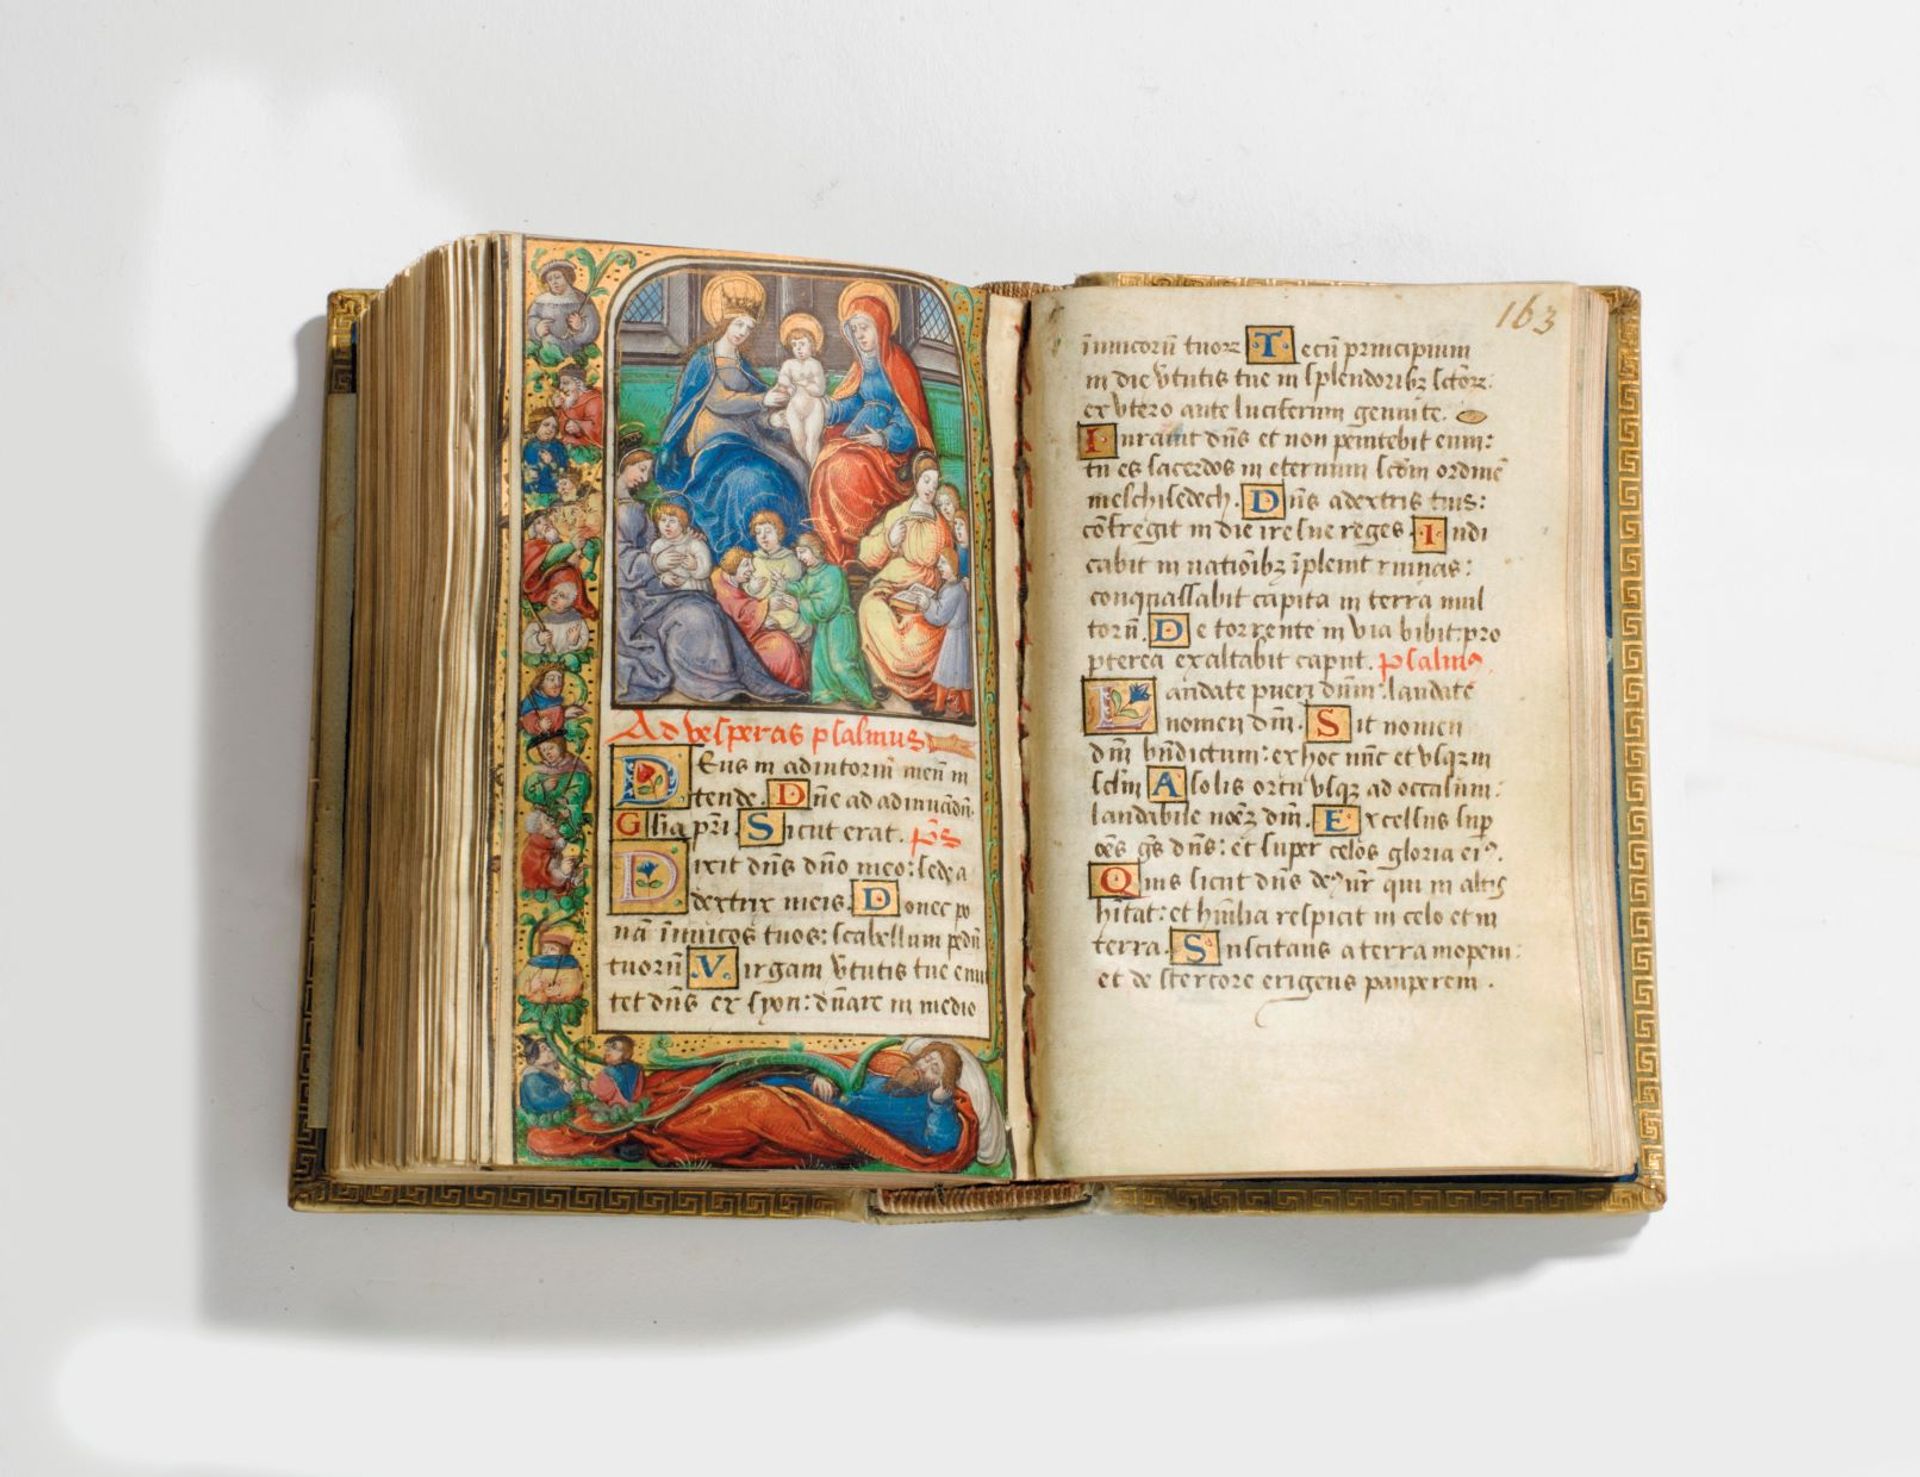 Ad vesperas psalmus
Deus in adiutoriū meū in
tende. Dn̄e ad adiuuādū.
Gl̄ia pr̄i. Sicut erat. ps̄
Dixit dn̄s dn̄o meo: sede a
dextrix meis. Donec po
nā inimicos tuos: scabellum pedū
tuorū Virgam v̄tutis tue emi
tet dn̄s ex syon: dn̄are in medio
163
īimicorū tuorꝝ Tecū principium
in die v̄tutis tue in splendoribꝫ sc̄torꝝ:
ex vtero ante luciferum genui te.
Iurauit dn̄s et non penitebit eum:
tu es sacerdos in eternum scd̄m ordinē
melchisedech. Dn̄s a dextris tuis:
cōfregit in die ire sue reges. Iudi
cabit in natiōibꝫ īpleuit ruinas:
conquassabit capita in terra mul
torū. De torrente in via bibit: pro
pterea exaltabit caput. psalmꝰ.
Laudate pueri dn̄m: laudate
nomen dn̄i. Sit nomen
dn̄i bn̄dictum: ex hoc nūc et vsqꝫ in
sclm̄ A solis ortu vsqꝫ ad occasum:
laudabile nomē dn̄i. Excelsus sup̄
oēs gn̄s dn̄s: et super celos gloria eiꝰ.
Quis sicut dn̄s deꝰ nr̄ qui in altis
hītat: et hūilia respicit in celo et in
terra. Suscitans a terra inopem:
et de stercore erigens pauperem.